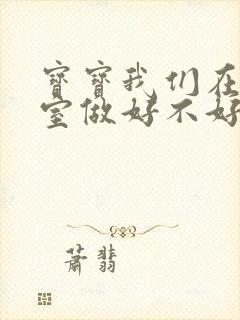 寶寶我们在
室做好不好
蕭翡